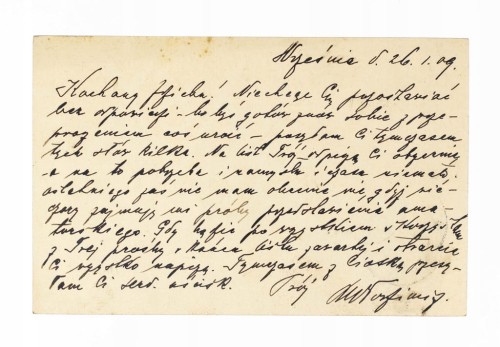 Września d. 26.1.09.
Kochany! Nie chcę Cię pozostawić
bez odpowiedzi - bo byś gotów znów sobie z
coś uroić - posyłam Ci tymczasem
tych słów kilka. Na list Twój odpiszę Ci obszernie
a na to potrzeba i namysłu i czasu niemało.
ostatniego zaś nie mam obecnie nic gdyż
zajmują mi próby przedstawienia ama-
torskiego. Gdy będzie po wszystkiem
z Twej prośby końca listu i otwarcie
Ci wszystko napiszę. Tymczasem z Ciotką przesy-
łam Ci serd. uścisk. Twój